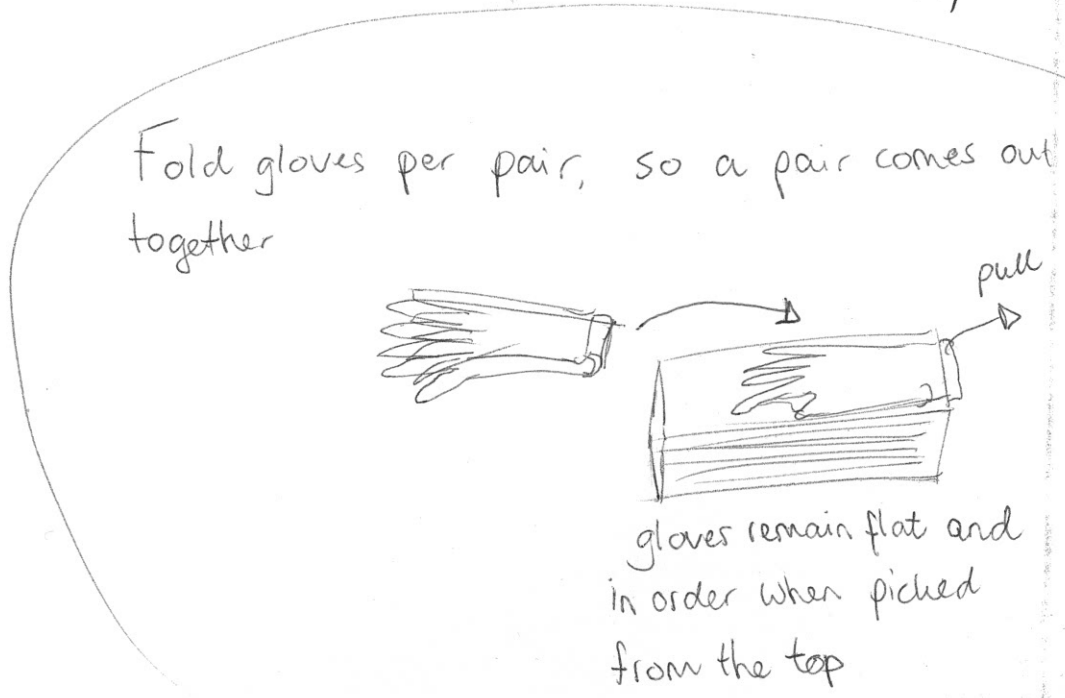 Fold gloves per pair, so a pair comes out
together
pull
gloves remain flat and
in order when picked
from the top